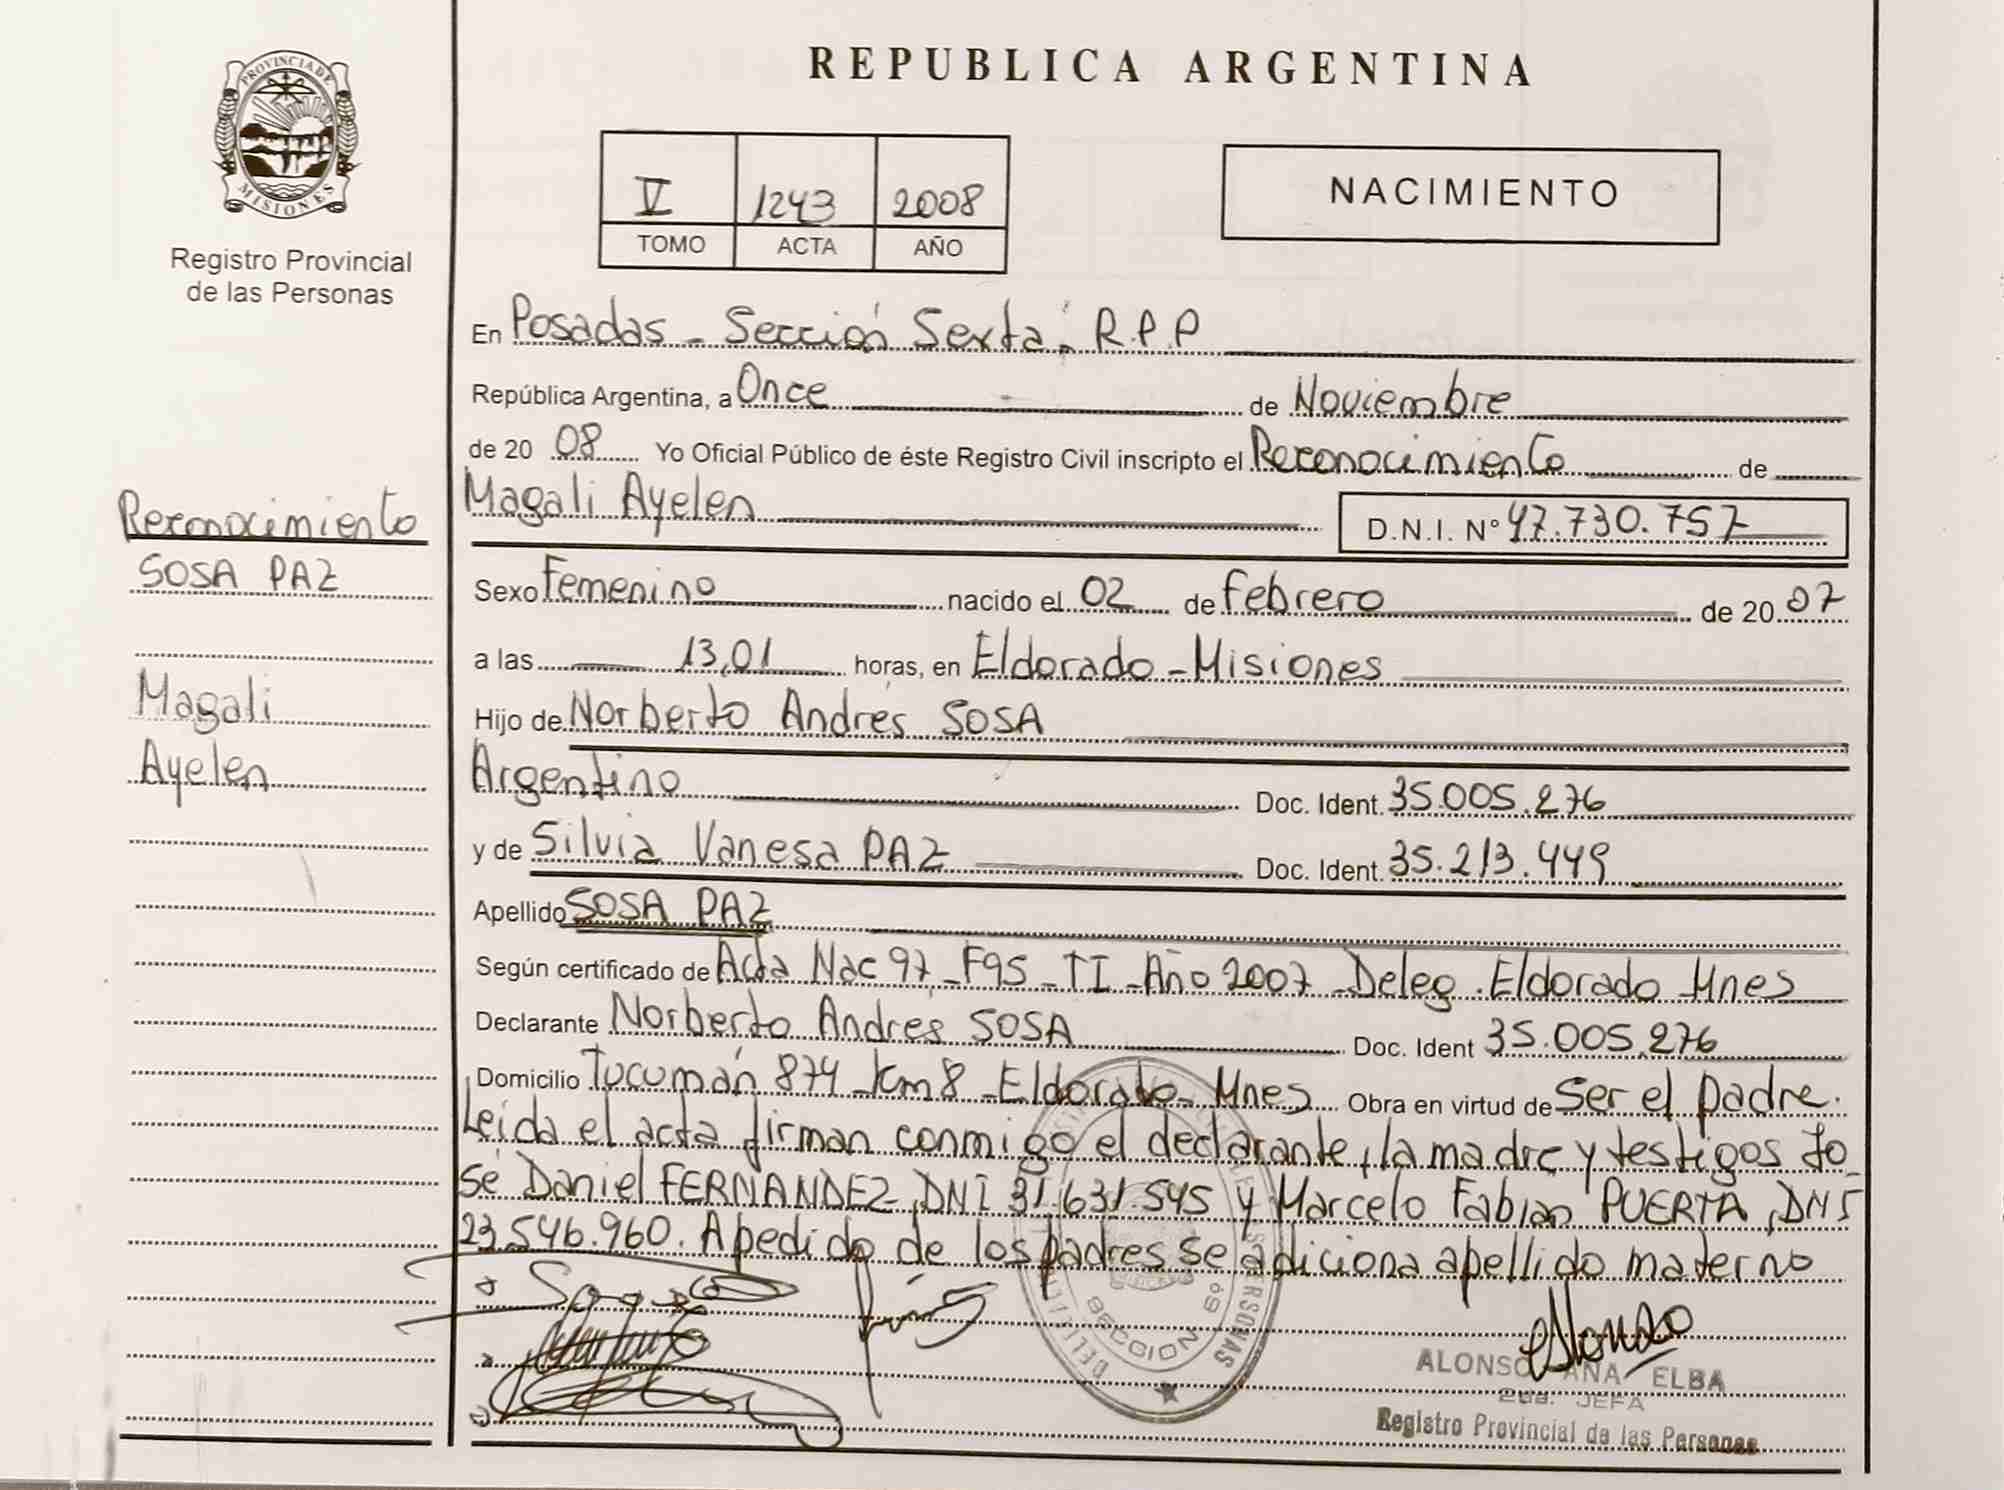 PROVINCIA DE
MISIONES
Registro Provincial
de las Personas
REPUBLICA ARGENTINA
V 1243 2008
TOMO ACTA AÑO
NACIMIENTO
En Posadas - Sección Sexta - R.P.P
República Argentina, a Once de Noviembre
de 20 08 Yo Oficial Público de éste Registro Civil inscripto el Reconocimiento de
Magali Ayelen D.N.I. Nº 47.730.757
Sexo Femenino nacido el 02 de febrero de 20 07
a las 13,01 horas, en Eldorado - Misiones
Hijo de Norberto Andrés SOSA
Argentino Doc. Ident. 35.005.276
y de Silvia Vanesa PAZ Doc. Ident. 35.213.449
Apellido SOSA PAZ
Según certificado de Acta Nac 97 - F95 - TI - Año 2007 - Deleg. Eldorado Mnes
Declarante Norberto Andrés SOSA Doc. Ident 35.005.276
Domicilio Tucumán 874 - Km 8 - Eldorado - Mnes Obra en virtud de Ser el padre.
Leída el acta firman conmigo el declarante, la madre y testigos Jo-
sé Daniel FERNANDEZ, DNI 31.631.545 y Marcelo Fabian PUERTA, DNI
23.546.960. A pedido de los padres se adiciona apellido materno
Reconocimiento
SOSA PAZ
Magali
Ayelen
SECCION 6º
ALONSO ANA ELBA
2da. JEFA
Registro Provincial de las Personas